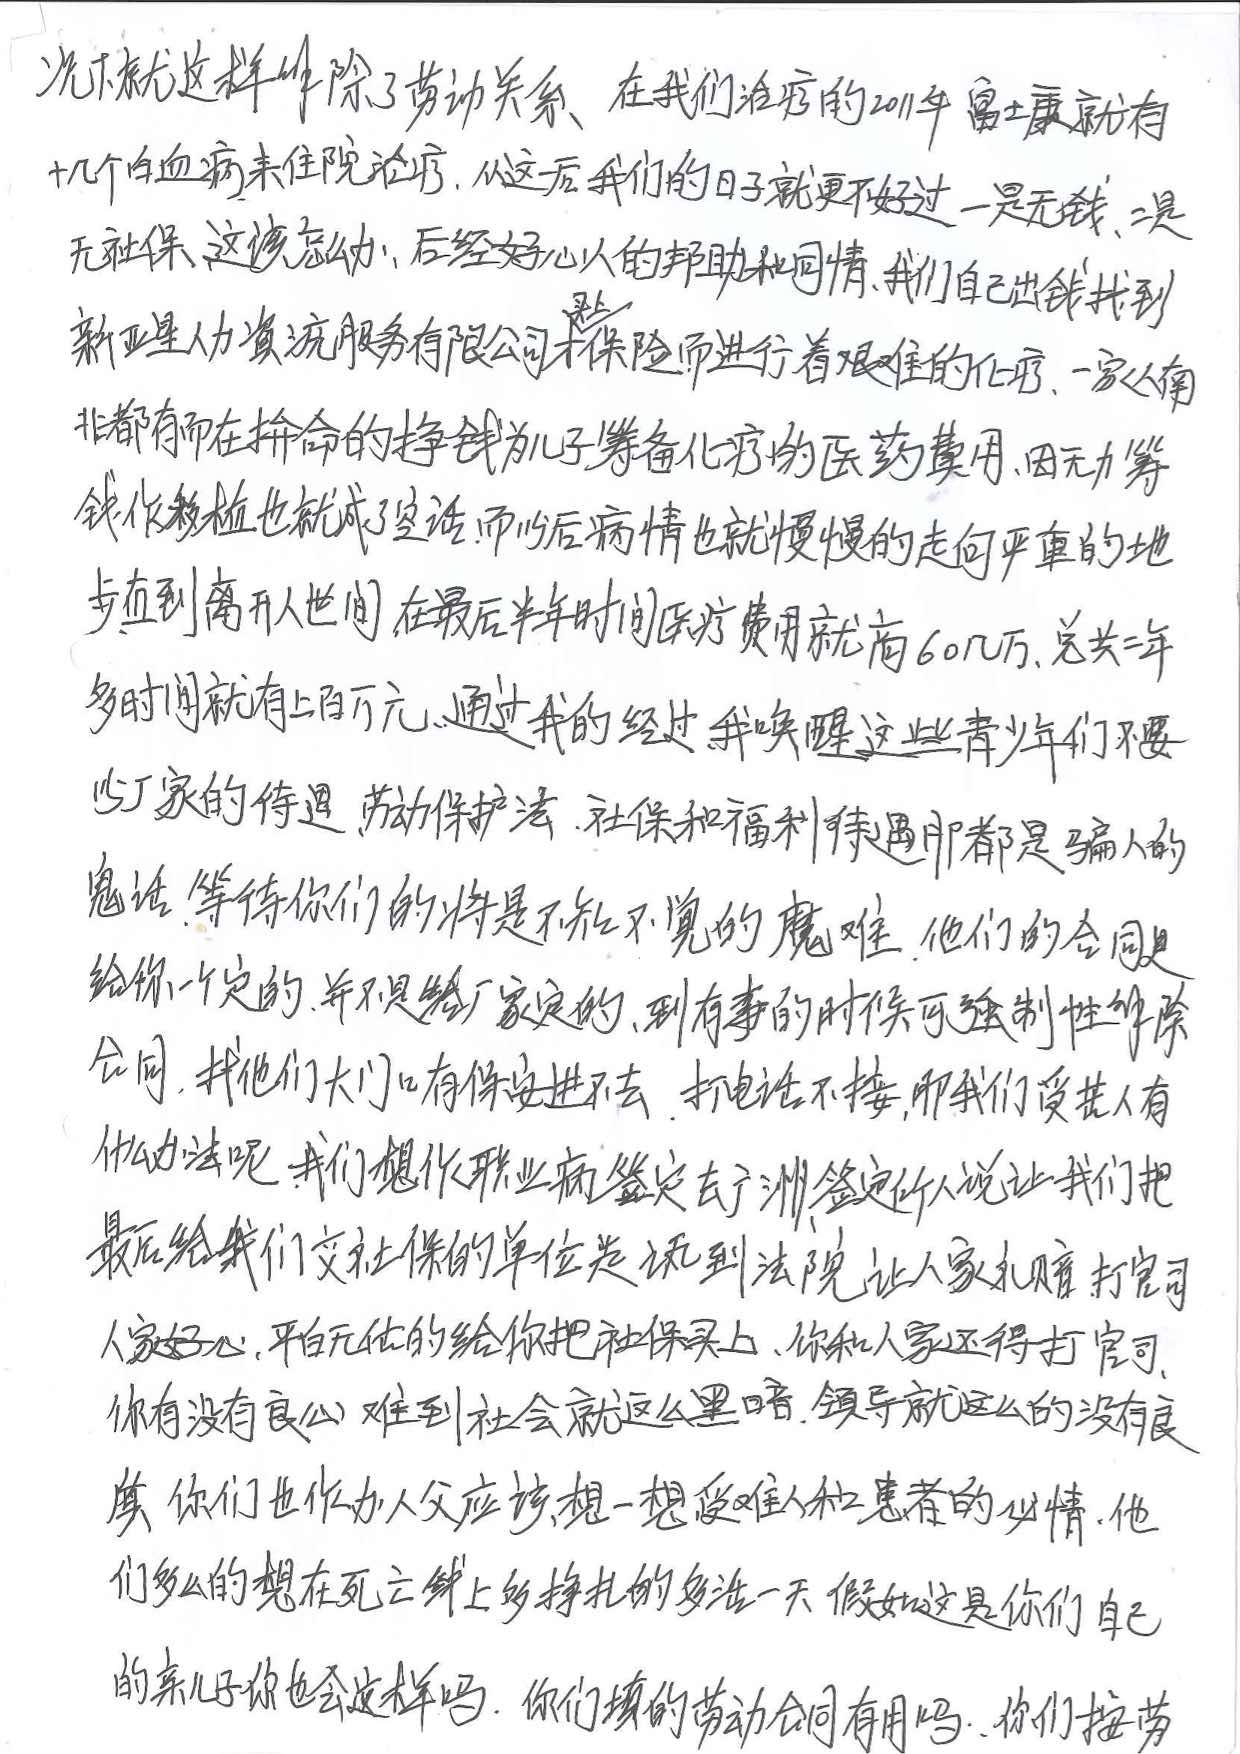 况下就这样解除了劳动关系、在我们治疗的2011年富士康就有
十几个白血病来住院治疗.从这后我们的日子就更不好过一是无钱、二是
无社保、这该怎么办、后经好心人的帮助和同情、我们自己出钱找到
新亚星人力资流服务有限公司才买上保险而进行着艰难的化疗、一家人南
非都有而在拚命的挣钱为儿子筹备化疗的医药费用、因无力筹
钱作移植也就成了空话.而以后病情也就慢慢的走向严重的地
步.直到离开人世间.在最后半年时间医疗费用就高60几万、总共二年
多时间就有上百万元、通过我的经过.我唤醒这些青少年们不要
以厂家的待遇.劳动保护法.社保和福利待遇那都是骗人的
鬼话.等待你们的将是不知不觉的魔难.他们的合同是
给你一个定的.并不是给厂家定的、到有事的时候可强制性解除
合同.找他们大门口有保安进不去.打电话不接,那我们受苦人有
什么办法呢.我们想作职业病签定去广洲,签定所人说让我们把
最后给我们交社保的单位告到法院让人家礼赔.打官司
人家好心.平白无估的给你把社保买上、你和人家还得打官司、
你有没有良心.难到社会就这么黑暗.领导就这么的没有良
真.你们也作为人父应该想一想受难人和患者的心情.他
们多么的想在死亡线上多挣扎的多活一天.假如这是你们自己
的亲儿子你也会这样吗.你们填的劳动合同有用吗..你们按劳